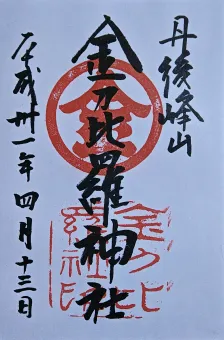 丹後峰山
金刀比羅神社
平成卅一年四月十三日
金
金刀比
羅神社
印